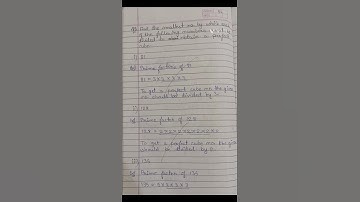 Q) Find the smallest no. by which each
of the following numbers must be
divided to obtain a perfect
cube.
i) 81
Prime factor of 81
81 = 3 x 3 x 3 x 3
To get a perfect cube no. the given
no. should be divided by 3.
128
Prime factor of 128
128 = 2 x 2 x 2 x 2 x 2 x 2 x 2
To get a perfect cube no. the given
should be divided by 2.
135
Prime factor of 135
135 = 3 x 3 x 3 x